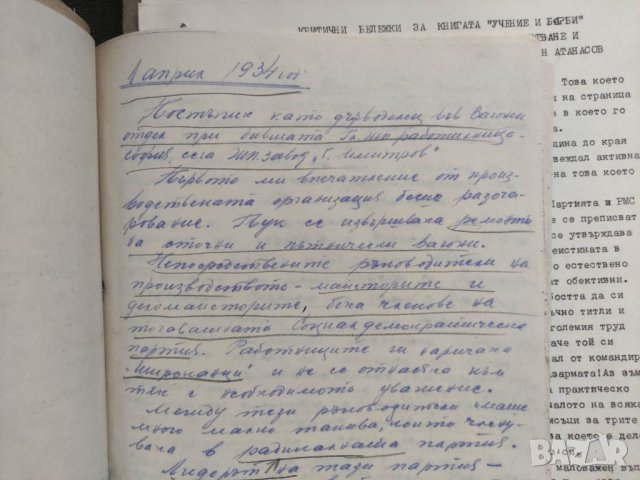 КРИТИЧНИ БЕЛЕЖКИ ЗА КНИГАТА "УЧЕНИЕ И БОРБИ"
ТВАНЕ И
Н АТАНАСОВ
1 април 1934 год.
Постъпих като дърводелец във вагонен
отдел при бившата Гл. жп работилница-
София, сега ЖП. завод „Г. Димитров"
Първото ми впечатление от произ-
водствената организация беше разоча-
рование. Тук се извършваха ремонти
на сточни и пътнически вагони.
Непосредствените ръководители на
производството - майсторите и
декомайсторите, бяха членове на
тогавашната Социалдемократическа
партия. Работниците ги наричаха
„Широкаци" и не се отнасяха към
тях с необходимото уважение.
Между тези ръководители имаше
много малко такива, които члену-
ваха в радикалната партия.
Лидерът на тази партия -
Това което
и на страница
в в което го
а.
дина до края
веждал активна
на това което
Партията и РМС
е се преписват
се утвърждава
еистината в
о естествено
ат обективни.
бостта да си
ъчно титли и
големия труд
аче той си
ал от командир
дармата!Аз съм
а практическо
малото на всяка
мисъци за трите
ва което е дело
маловажен въп
БАЗАР